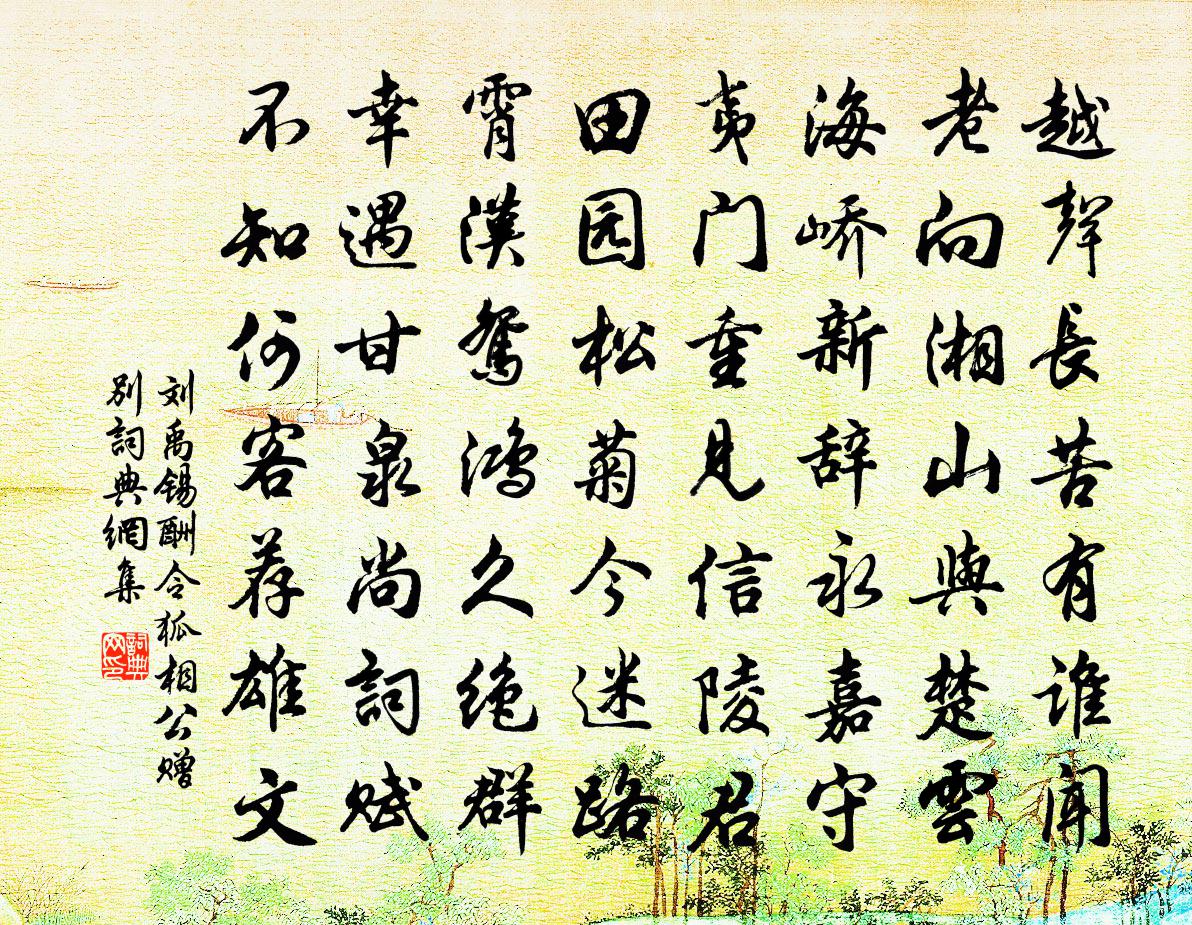 越聲長苦有谁闻
老向湘山與楚雲
海峤新辞永嘉守
夷门重见信陵君
田园松菊今迷路
霄漢鸳鸿久绝群
幸遇甘泉尚詞赋
不知何客荐雄文
刘禹锡酬令狐相公赠
别詞典網集
詞典网印